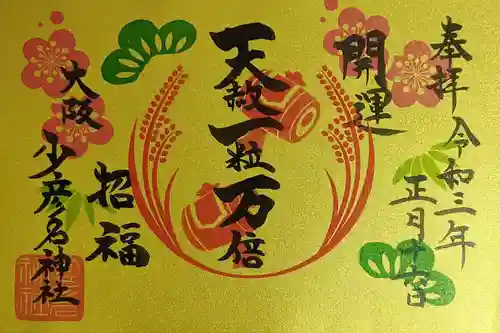 奉拝 令和三年
正月十六日
開運
天赦一粒万倍
招福
大阪 少彦名神社